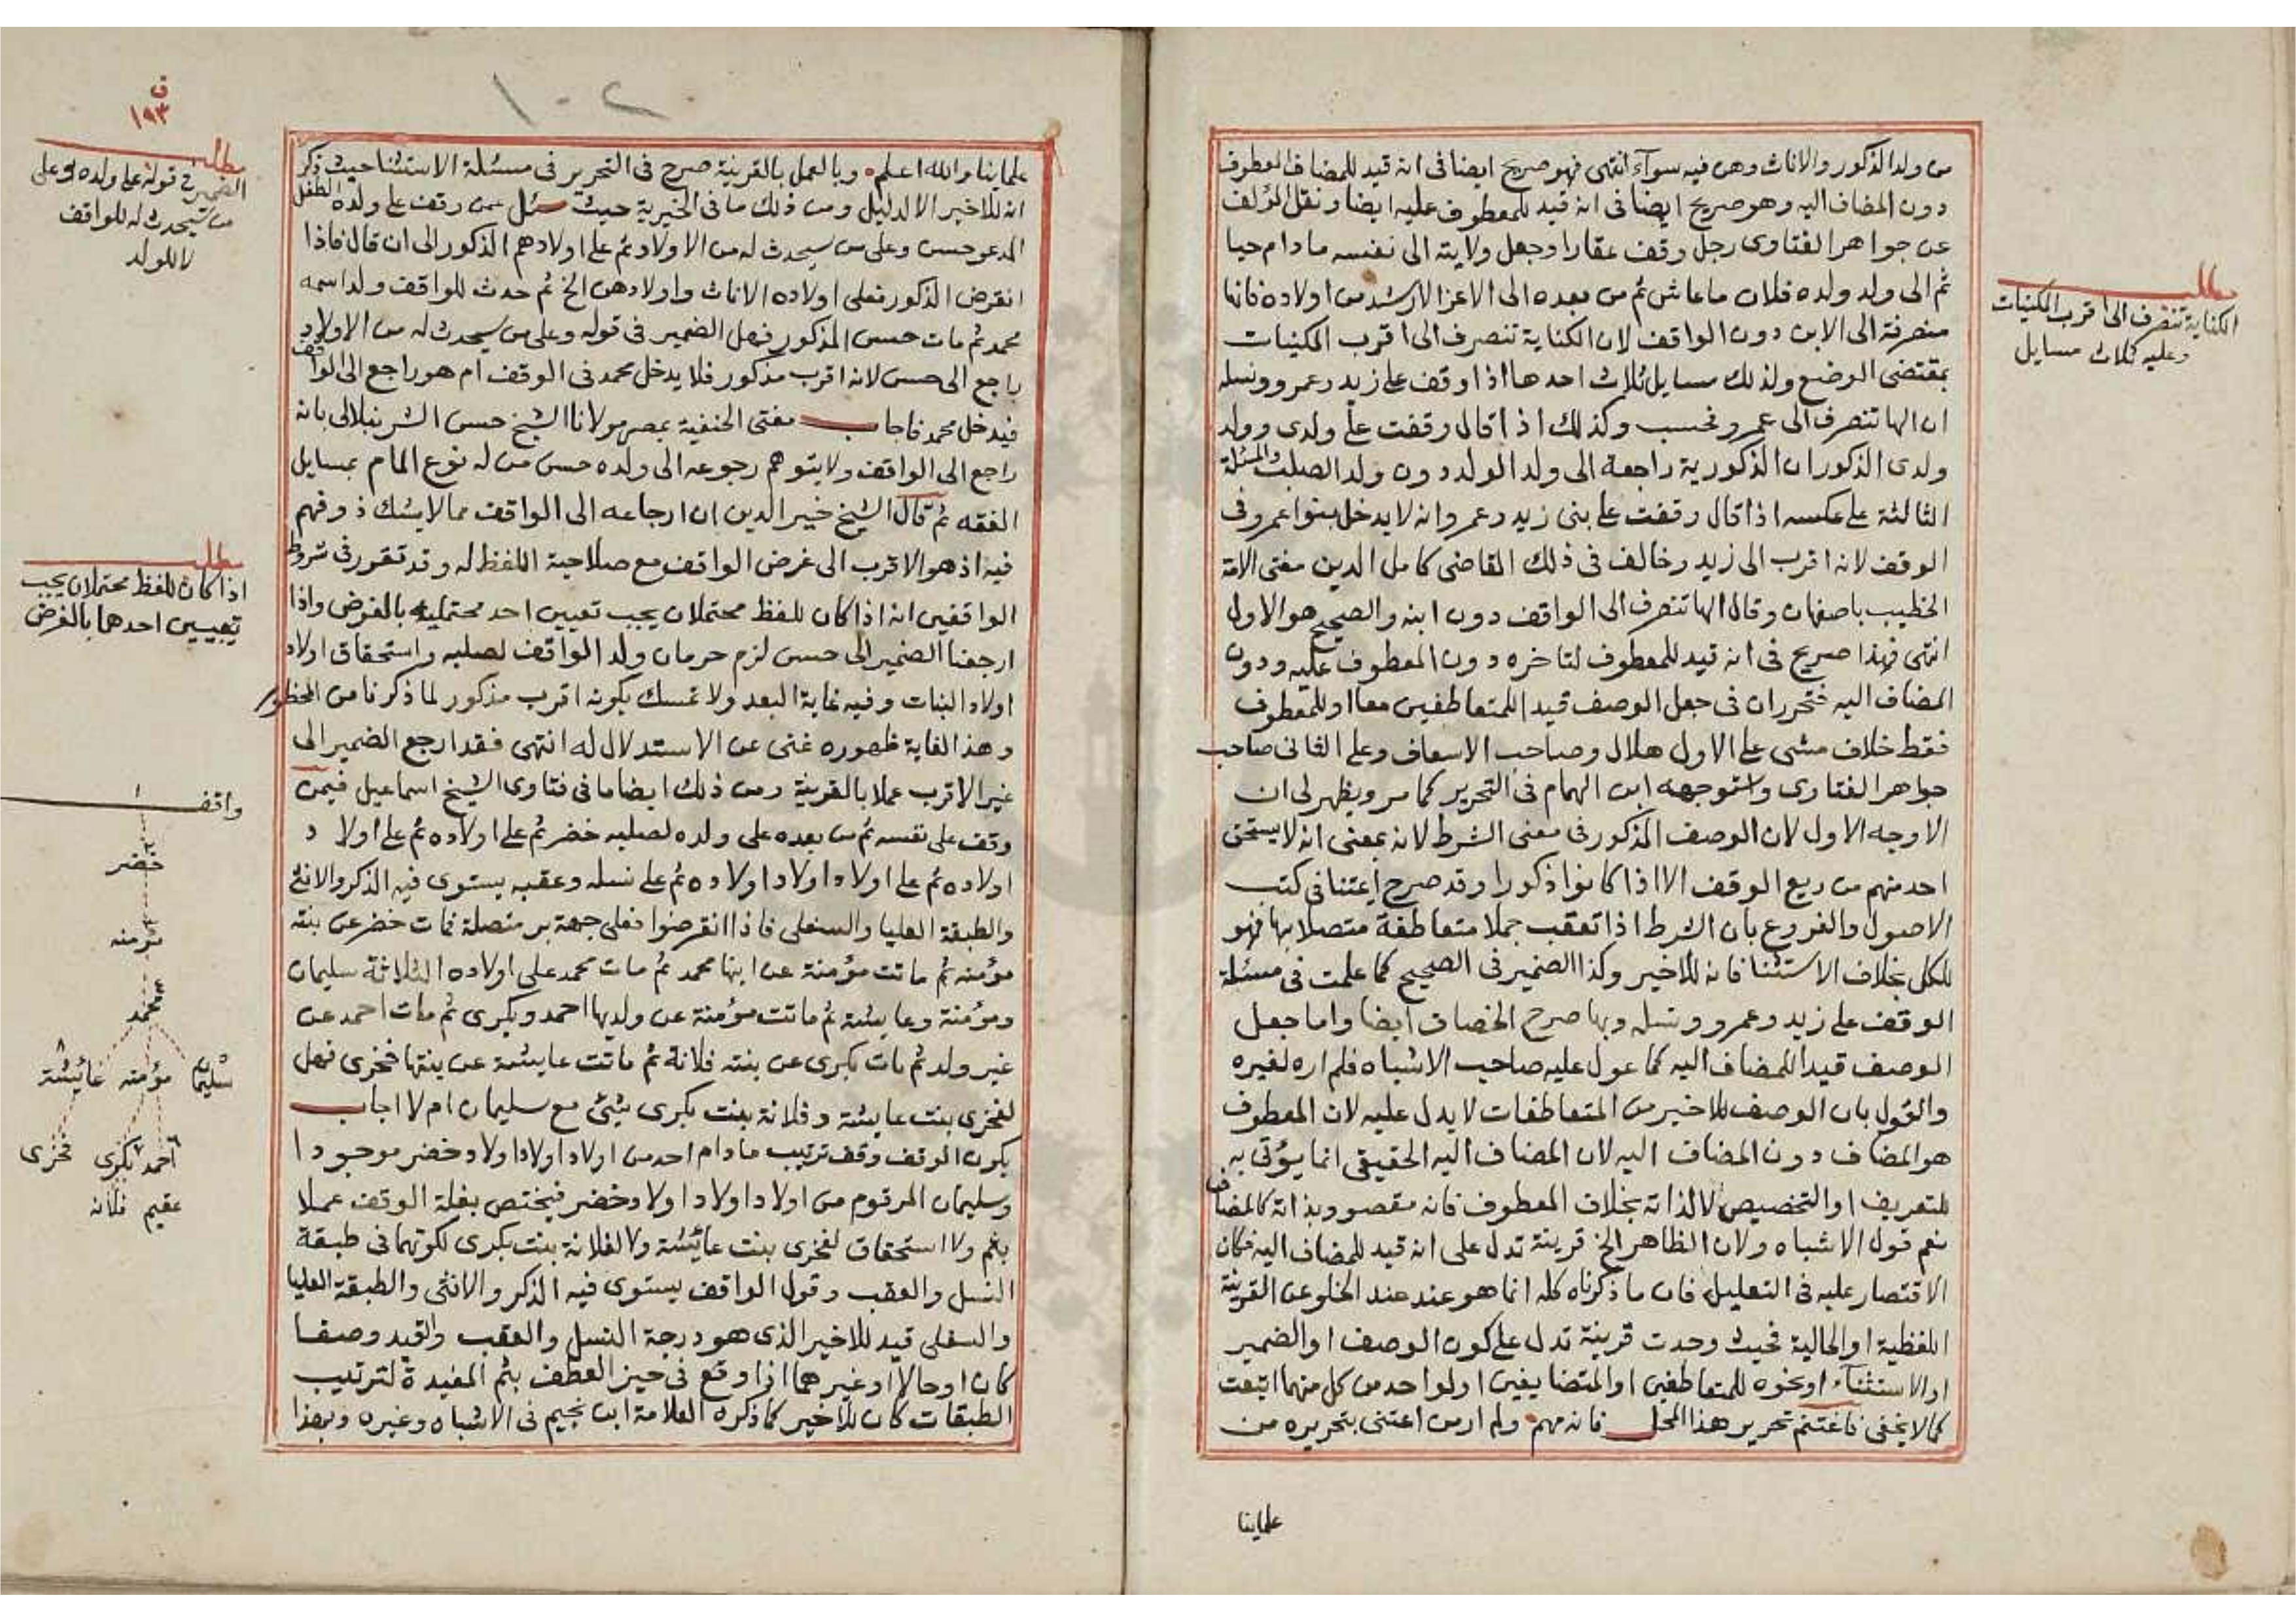 من ولد الذكور والاناث وهن فيه سوآء انتهى فهو صريح ايضا فى انه قيد للمضاف المعطوف
دون المضاف اليه وهو صريح ايضا فى انه قيد للمعطوف عليه ايضا ونقل المؤلف
عن جواهر الفتاوى رجل وقف عقارا وجعل ولايته الى نفسه ما دام حيا
ثم الى ولد ولده فلان ما عاش ثم من بعده الى الاعز الارشد من اولاده فانها
منصرفة الى الابن دون الواقف لان الكناية تنصرف الى اقرب المكنيات
بمقتضى الوضع ولذلك مسايل ثلاث احدها اذا وقف على زيد وعمرو ونسله
ان الها تنصرف الى عمرو فحسب وكذلك اذا قال وقفت على ولدى وولد
ولدى الذكور ان الذكورية راجعة الى ولد الولد دون ولد الصلب والمسئلة
الثالثة على عكسه اذا قال وقفت على بنى زيد وعمرو انه لا يدخل بنوا عمرو فى
الوقف لانه اقرب الى زيد وخالف فى ذلك القاضى كامل الدين مفتى الامة
الخطيب باصفهان وقال الها تنصرف الى الواقف دون ابنه والصحيح هو الاول
انتهى فهذا صريح فى انه قيد للمعطوف لتاخره دون المعطوف عليه ودون
المضاف اليه فتحرر ان فى جعل الوصف قيدا للمتعاطفين معا او للمعطوف
فقط خلاف مشى على الاول هلال وصاحب الاسعاف وعلى الثانى صاحب
جواهر الفتاوى واستوجهه ابن الهمام فى التحرير كما مر ويظهر لى ان
الاوجه الاول لان الوصف المذكور فى معنى الشرط لانه بمعنى انه لا يستحق
احد منهم من ريع الوقف الا اذا كانوا ذكورا وقد صرح ايمتنا فى كتب
الاصول والفروع بان الشرط اذا تعقب جملا متعاطفة متصلا بها فهو
للكل بخلاف الاستثنا فانه للاخير وكذا الضمير فى الصحيح كما علمت فى مسئلة
الوقف على زيد وعمرو ونسله وبها صرح الخصاف ايضا واما جعل
الوصف قيدا للمضاف اليه كما عول عليه صاحب الاشباه فلم اره لغيره
والقول بان الوصف للاخير من المتعاطفات لا يدل عليه لان المعطوف
هو المضاف دون المضاف اليه لان المضاف اليه الحقيقى انما يؤتى به
للتعريف او التخصيص لا لذاته بخلاف المعطوف فانه مقصود بذاته كالمضاف
نعم قول الاشباه ولان الظاهر الخ قرينة تدل على انه قيد للمضاف اليه فكان
الاقتصار عليه فى التعليل فان ما ذكرناه كله انما هو عند عند الخلو عن القرينة
اللفظية او الحالية فحيث وجدت قرينة تدل على كون الوصف او الضمير
او الاستثنآء او نحوه للمتعاطفين او المتضايفين او لواحد من كل منهما اتبعت
كما لا يخفى فاغتنم تحرير هذا المحل فانه مهم ولم ار من اعتنى بتحريره من
علماينا
مطلب
الكناية تنصرف الى اقرب المكنيات
وعليه ثلاث مسايل
علماينا والله اعلم وبالعمل بالقرينة صرح فى التحرير فى مسئلة الاستثنا حيث ذكر
انه للاخير الا لدليل ومن ذلك ما فى الخيرية حيث سئل عمن وقف على ولده الطفل
المدعو حسن وعلى من سيحدث له من الاولاد ثم على اولادهم الذكور الى ان قال فاذا
انقرض الذكور فعلى اولاده الاناث واولادهن الخ ثم حدث للواقف ولد اسمه
محمد ثم مات حسن المذكور فهل الضمير فى قوله وعلى من سيحدث له من الاولاد
راجع الى حسن لانه اقرب مذكور فلا يدخل محمد فى الوقف ام هو راجع الى الواقف
فيدخل محمد فاجاب مفتى الحنفية بمصر مولانا الشيخ حسن الشرنبلالى بانه
راجع الى الواقف ولا يتوهم رجوعه الى ولده حسن من له نوع المام بمسايل
الفقه ثم قال الشيخ خير الدين ان ارجاعه الى الواقف مما لا يشك ذو فهم
فيه اذ هو الاقرب الى غرض الواقف مع صلاحية اللفظ له وقد تقرر فى شروط
الواقفين انه اذا كان للفظ محتملان يجب تعيين احد محتمليه بالغرض واذا
ارجعنا الضمير الى حسن لزم حرمان ولد الواقف لصلبه واستحقاق اولاد
اولاد البنات وفيه غاية البعد ولا تمسك بكونه اقرب مذكور لما ذكرنا من المحظور
وهذا لغاية ظهوره غنى عن الاستدلال له انتهى فقد ارجع الضمير الى
غير الاقرب عملا بالقرينة ومن ذلك ايضا ما فى فتاوى الشيخ اسماعيل فيمن
وقف على نفسه ثم من بعده على ولده لصلبه خضر ثم على اولاده ثم على اولاد
اولاده ثم على اولاد اولاد اولاده ثم على نسله وعقبه يستوى فيه الذكر والانثى
والطبقة العليا والسفلى فاذا انقرضوا فعلى جهة بر متصلة فمات خضر عن بنته
مؤمنه ثم ماتت مؤمنة عن ابنها محمد ثم مات محمد على اولاده الثلاثة سليمان
ومؤمنة وعايشة ثم ماتت مؤمنة عن ولديها احمد وبكرى ثم مات احمد عن
غير ولد ثم مات بكرى عن بنته فلانة ثم ماتت عايشة عن بنتها فخرى فهل
لفخرى بنت عايشة وفلانة بنت بكرى شئ مع سليمان ام لا اجاب
يكون الوقف وقف ترتيب ما دام احد من اولاد اولاد اولاد خضر موجودا
وسليمان المرقوم من اولاد اولاد اولاد خضر فيختص بغلة الوقف عملا
بثم ولا استحقاق لفخرى بنت عائشة ولا لفلانة بنت بكرى لكونهما فى طبقة
النسل والعقب وقول الواقف يستوى فيه الذكر والانثى والطبقة العليا
والسفلى قيد للاخير الذى هو درجة النسل والعقب والقيد وصفا
كان او حالا او غيرهما اذا وقع فى حيز العطف بثم المفيدة لترتيب
الطبقات كان للاخير كما ذكره العلامة ابن نجيم فى الاشباه وغيره وبهذا
١٠٢
ق
١٩٣
مطلب
الضمير فى قوله على ولده وعلى
من سيحدث له للواقف
لا للولد
مطلب
اذا كان للفظ محتملان يجب
تعيين احدهما بالغرض
واقف ١
٢
خضر
٣
مؤمنه
٤
محمد
سليمان ٥ مؤمنه عائشة ٨
احمد ٦ بكرى ٧ فخرى
عقيم فلانه